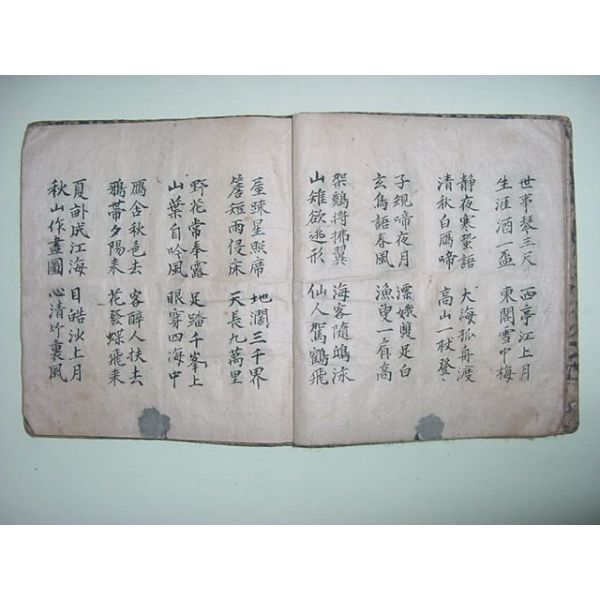 世事琴三尺 西亭江上月
生涯酒一盃 東閣雪中梅
靜夜寒蛩語 大海孤舟渡
清秋白鴈啼 高山一杖登
子規啼夜月 漂娥雙足白
玄鳥語春風 漁叟一肩高
架鷄將拂翼 海客隨鷗泳
山雉欲逃形 仙人駕鶴飛
屋踈星照席 地濶三千界
簷短雨侵床 天長九萬里
野花常奉露 足踏千峯上
山葉自吟風 眼穿四海中
鴈含秋色去 客醉人扶去
鴉帶夕陽来 花發蝶飛来
夏畝成江海 目皓沙上月
秋山作畫圖 心清竹裏風